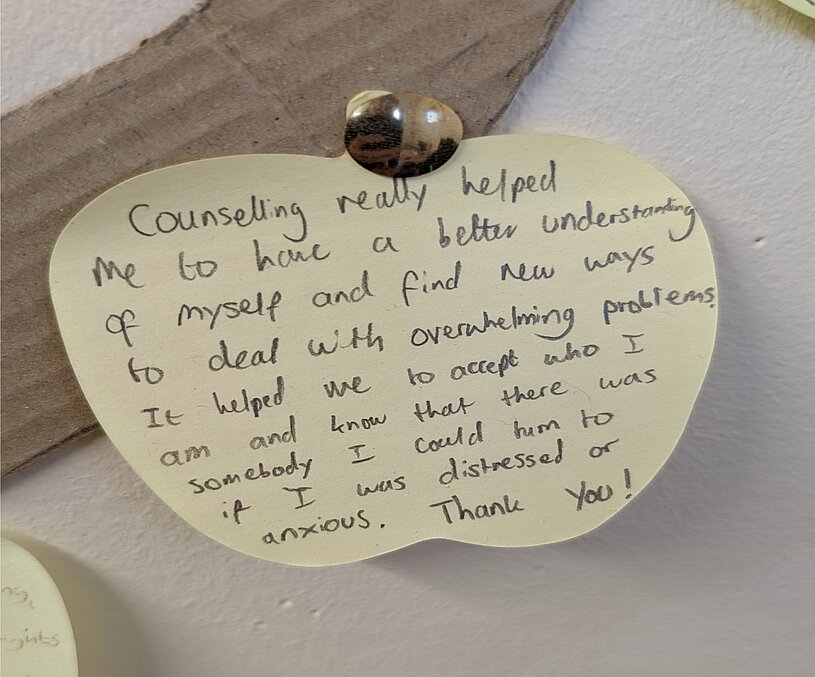 Counselling really helped
me to have a better understanding
of myself and find new ways
to deal with overwhelming problems.
It helped me to accept who I
am and know that there was
somebody I could turn to
if I was distressed or
anxious. Thank You!